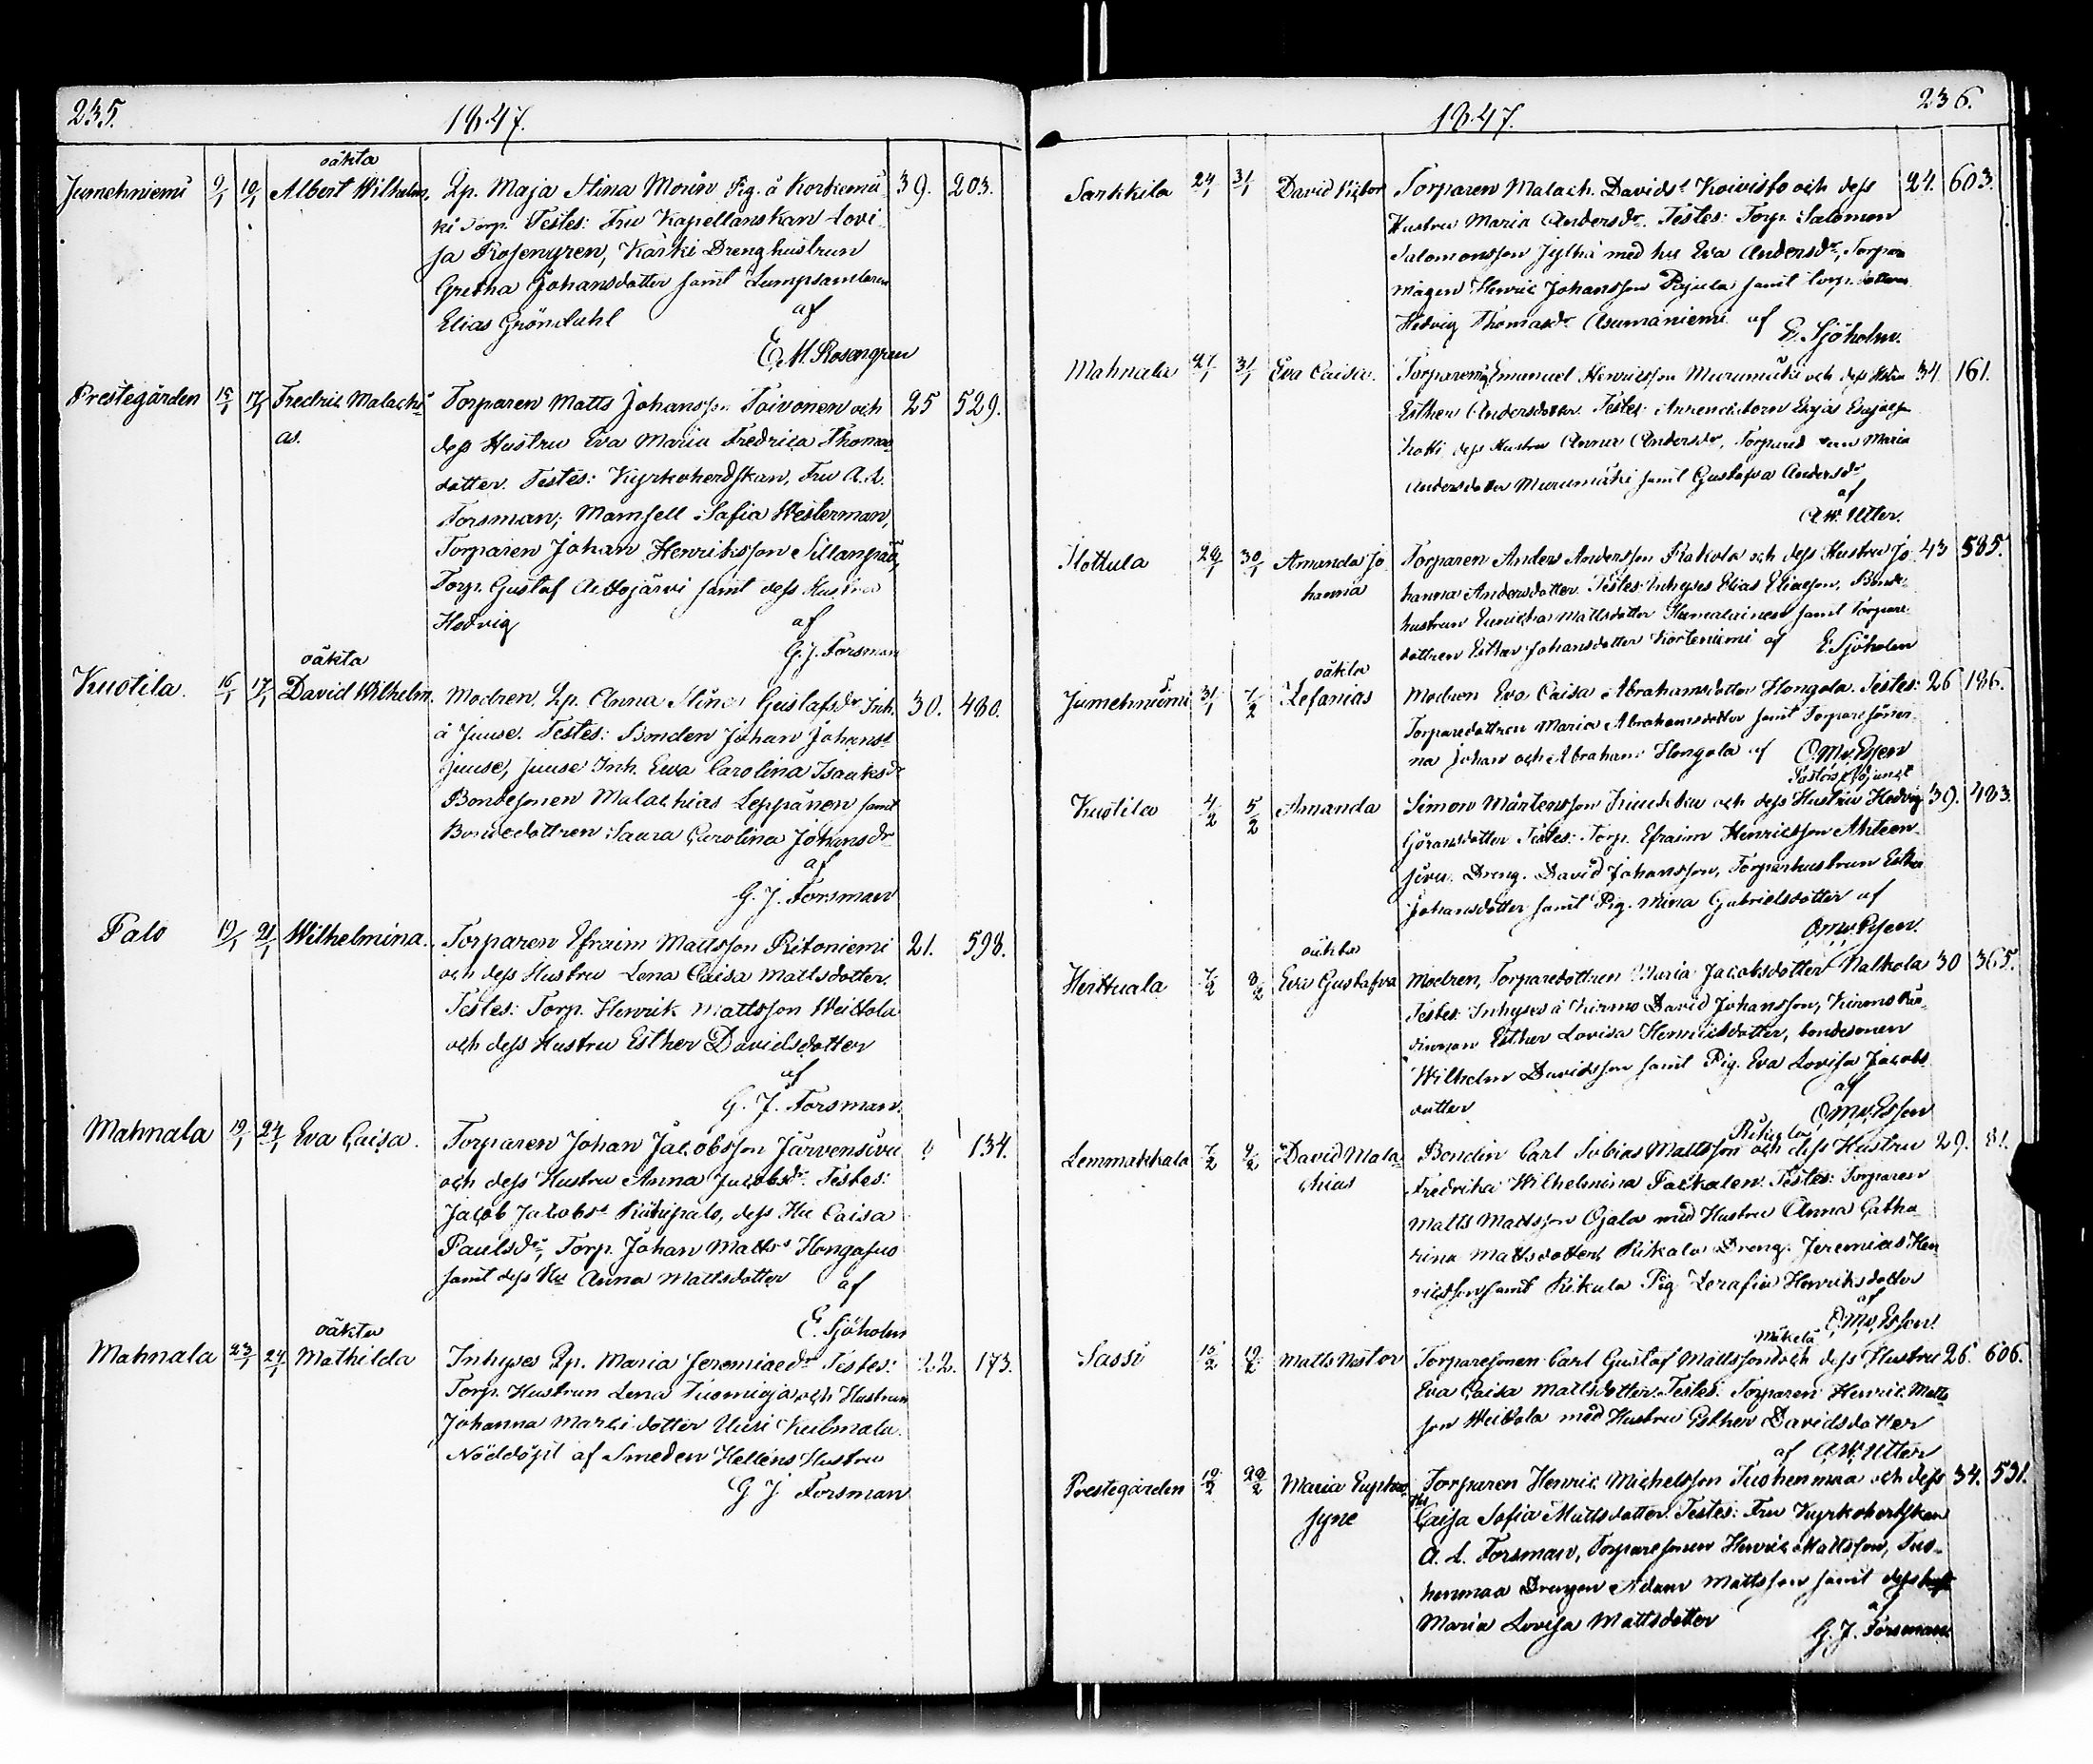 235.
1847.
oäkta
Jumehniemi 9/1 10/1 Albert Wilhelm. Qp. Maja Stina Morin Pig. å Korkemä 39. 203.
ki Torp. Testes: Fru Kapellanskan Lovi
sa Rosengren, Kärki Drenghustrun
Gretha Johansdotter samt Lumpsamlaren
Elias Gröndahl af
E. M. Rosengren
Prestegården 15/1 17/1 Fredric Malachi Torparen Matts Johansson Toivonen och 25 529.
as. dess Hustru Eva Maria Fredrica Thomas
dotter. Testes: Kyrkoherdskan, Fru A. L.
Forsman; Mamsell Safia Westerman,
Torparen Johan Henriksson Sillanpää,
Torp. Gustaf Aittojärvi samt dess Hustru
Hedvig af
G. J. Forsman
oäkta
Kuotila. 16/1 17/1 David Wilhelm. Modren. Qp. Anna Stina Gustafsdr Inh. 30. 480.
å Juuse. Testes: Bonden Johan Johanss
Juuse, Juuse Inh. Ewa Carolina Isaaksdr
Bondesonen Malachias Leppänen samt
Bondedottren Saara Carolina Johansdr
af
G. J. Forsman
Palo 19/1 21/1 Wilhelmina. Torparen Efraim Mattsson Ritoniemi 21. 598.
och dess Hustru Lena Caisa Mattsdotter.
Testes: Torp. Henrik Mattsson Weittola
och dess Hustru Esther Davidsdotter
af
G. J. Forsman.
Mahnala 19/1 24/1 Eva Caisa. Torparen Johan Jacobsson Järvensivu 134.
och dess Hustru Anna Jacobsdr. Testes:
Jacob Jacobss Riihipalo, dess Hu Caisa
Paulsdr, Torp. Johan Mattss Hongasuo
samt dess Hu Anna Mattsdotter af
E. Sjöholm
oäkta
Mahnala 23/1 24/1 Mathilda Inhyses Qp. Maria Jeremiaedr Testes: 22. 173.
Torp. Hustrun Lena Tuomioja och Hustrun
Johanna Marki dotter Uusi Kulmala.
Nöddöpt af Smeden Hellens Hustru
G J Forsman
236.
1847.
Sarkkila 24/1 31/1 David Victor Torparen Malach. Davidss Koivisto och dess 24. 603.
Hustru Maria Andersdr. Testes: Torp. Salomon
Salomonsson Jylhä med hu Eva Andersdr, Torpare
mågen Henric Johansson Pajula samt torp. dottren
Hedvig Thomasdr Asumaniemi af E. Sjöholm.
Mahnala 27/1 31/1 Eva Caisa. Torparen Emanuel Henricsson Murumäki och dess Hustru 34. 161.
Esther Andersdotter. Testes: Esajas
dess Hustru Anna Andersdr, Maria
Andersdotter Murumäki samt Gustafva Andersdr
af
A. W. Utter.
Hottula 28/1 30/1 Amanda Jo Torparen Anders Andersson Rakola och dess Hustru Jo 43 585.
hanna hanna Andersdotter. Testes: Inhyses Elias Eliasson, Bonde
hustrun Eunicha Mattsdotter samt Torpare
dottren Esther Johansdotter Korteniemi af E. Sjöholm
oäkta
Jumehniemi 31/1 1/2 Zefanias Modren Eva Caisa Abrahamsdotter Hongola. Testes: 26 186.
Torparedottren Maria Abrahamsdotter samt Torparesöner
na Johan och Abraham Hongola af O. M. v. Essen
Pastors Adjunct
Kuotila 4/2 5/2 Amanda Simon Mårtensson och dess Hustru Hedvig 39. 483.
Göransdotter Testes: Torp. Efraim Henricsson Ahteen
sivu. Dreng. David Johansson, Torparhustrun Esther
Johansdotter samt Pig. Mina Gabrielsdotter af
O. M. v. Essen.
oäkta
Herttuala 7/2 8/2 Eva Gustafva Modren, Torparedottren Maria Jacobsdotter Malkola 30 365.
Testes: Inhyses å Kirmo David Johansson, Kirmo
Esther Lovisa Henricsdotter, bondesonen
Wilhelm Davidsson samt Pig. Eva Lovisa Jacobs
dotter af
O. M. v. Essen
Rikala
Lemmakkala 7/2 9/2 David Mala Bonden Carl Tobias Mattsson och dess Hustru 29. 81.
chias Fredrika Wilhelmina Testes: Torparen
Matts Mattsson Ojala med Hustru Anna Catha
rina Mattsdotter, Rikala Dreng. Jeremias Hen
ricsson samt Rikala Pig Serafia Henriksdotter
af
O. M. v. Essen.
Mäkelä
Sassi 15/2 19/2 Matts Nestor Torparesonen Carl Gustaf Mattsson och dess Hustru 26. 606.
Eva Caisa Mattsdotter. Testes: Torparen Henric Matts
son Weittola med Hustru Esther Davidsdotter
af A. W. Utter
Prestegården 19/2 22/2 Maria Euphro Torparen Henric Michelsson Tuohenmaa och dess 34. 531.
syne Hu Caisa Sofia Mattsdotter. Testes: Fru Kyrkoherdskan
A. L. Forsman, Torparesonen Henric Mattsson, Tuo-
henmaa Drengen Adam Mattsson samt dess hust
Maria Lovisa Mattsdotter af
G. J. Forsman